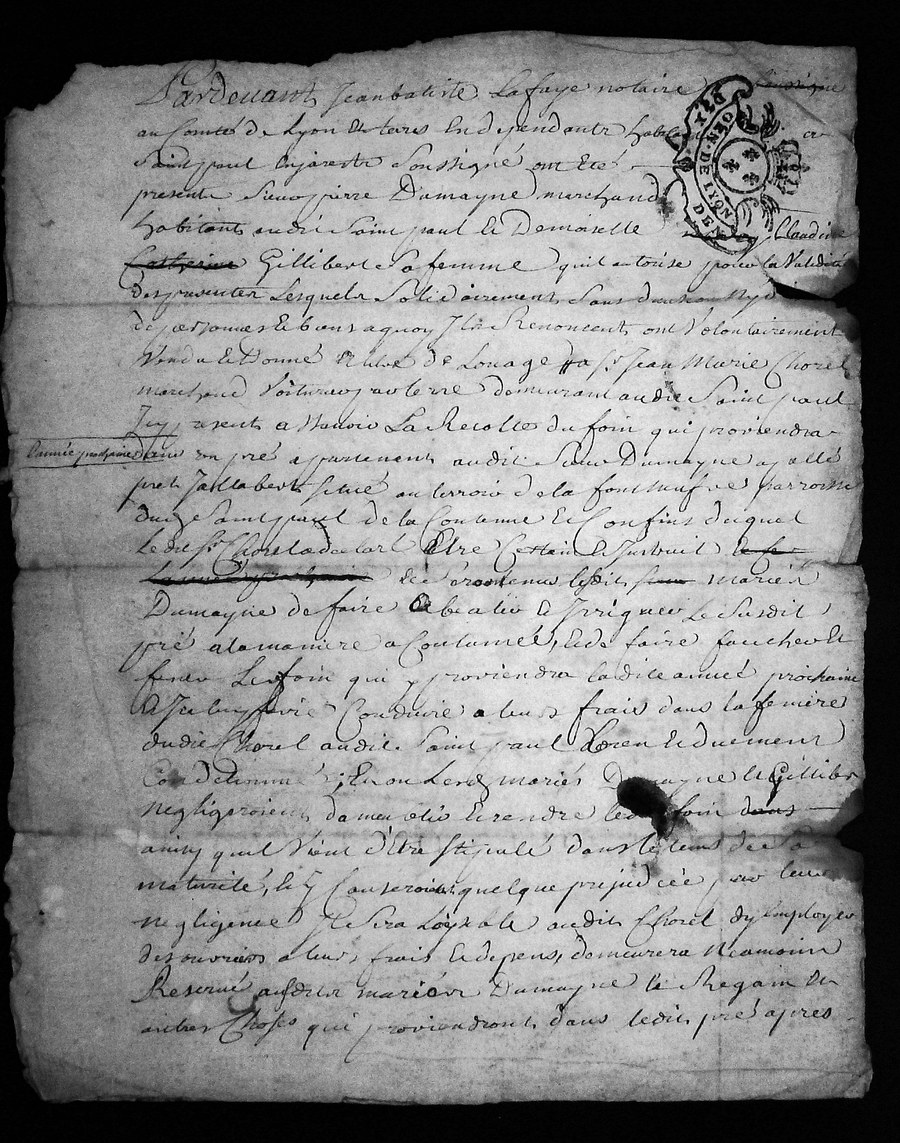 Pardevant Jean batiste Lafaye notaire
au Comté de Lyon et terres Endependante habitant
Saint paul Enjarest Soussigné ont Eté
presents Sieur pierre Dumayne marchand
habitant audit Saint paul Et Demoiselle Claudine
Catherine Gillibert Sa femme quil autorise pour la Validité
des presentes Lesquels Solidairement Sans division ny
de personnes Et biens a quoy Ils Renoncent ont Volontairement
Vendu Et Donné de Louage a Sr. Jean Marie Chorel
marchand Voiturier par terre demeurant audit Saint paul
Icy present a Scavoir La Recolte du foin qui proviendra
L'année prochaine Dans un pré appartenant audit Sieur Dumayne apellé
pré Jallabert Situé au terroir de la font parroisse
dudt. Saint paul de la Contenue Et Confins duquel
Ledit Sr. Chorel a declaré Etre Certain Et Instruit
Et Seront tenus lesdits mariés
Dumayne de faire Et Irriguer Le Susdit
pré a la maniere acoutumée, Et de faire faucher Et
fener Le foin qui y proviendra ladite année prochaine
Et Icelluy faire Conduire a leurs frais dans la feniere
dudit Chorel audit Saint paul Et duement
Conditionné; Et ou Lesdts mariés Dumayne Et Gillibert
negligeroient Et rendre ledt foin dans
ainsy quil Vient d'Etre Stipulé dans le tems de Sa
maturité, Et y Causeroient quelque prejudice, par leur
negligence Il Sera Loysible audit Chorel dy Employer
des ouvriers a leurs frais Et depens, demeurera Neamoins
Reservé ausdits mariés Dumayne le Regain Et
autres Choses qui proviendront dans ledit pré apres
GEN. DE LYON